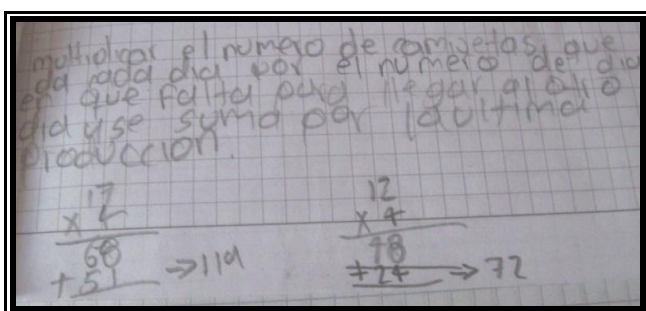 multiplicar el numero de camisetas que
da cada dia por el numero de dia
en que falta para llegar al otro
dia y se suma por la ultima
produccion.
17 12
x 4 x 4
68 48
+ 51 → 119 + 24 → 72